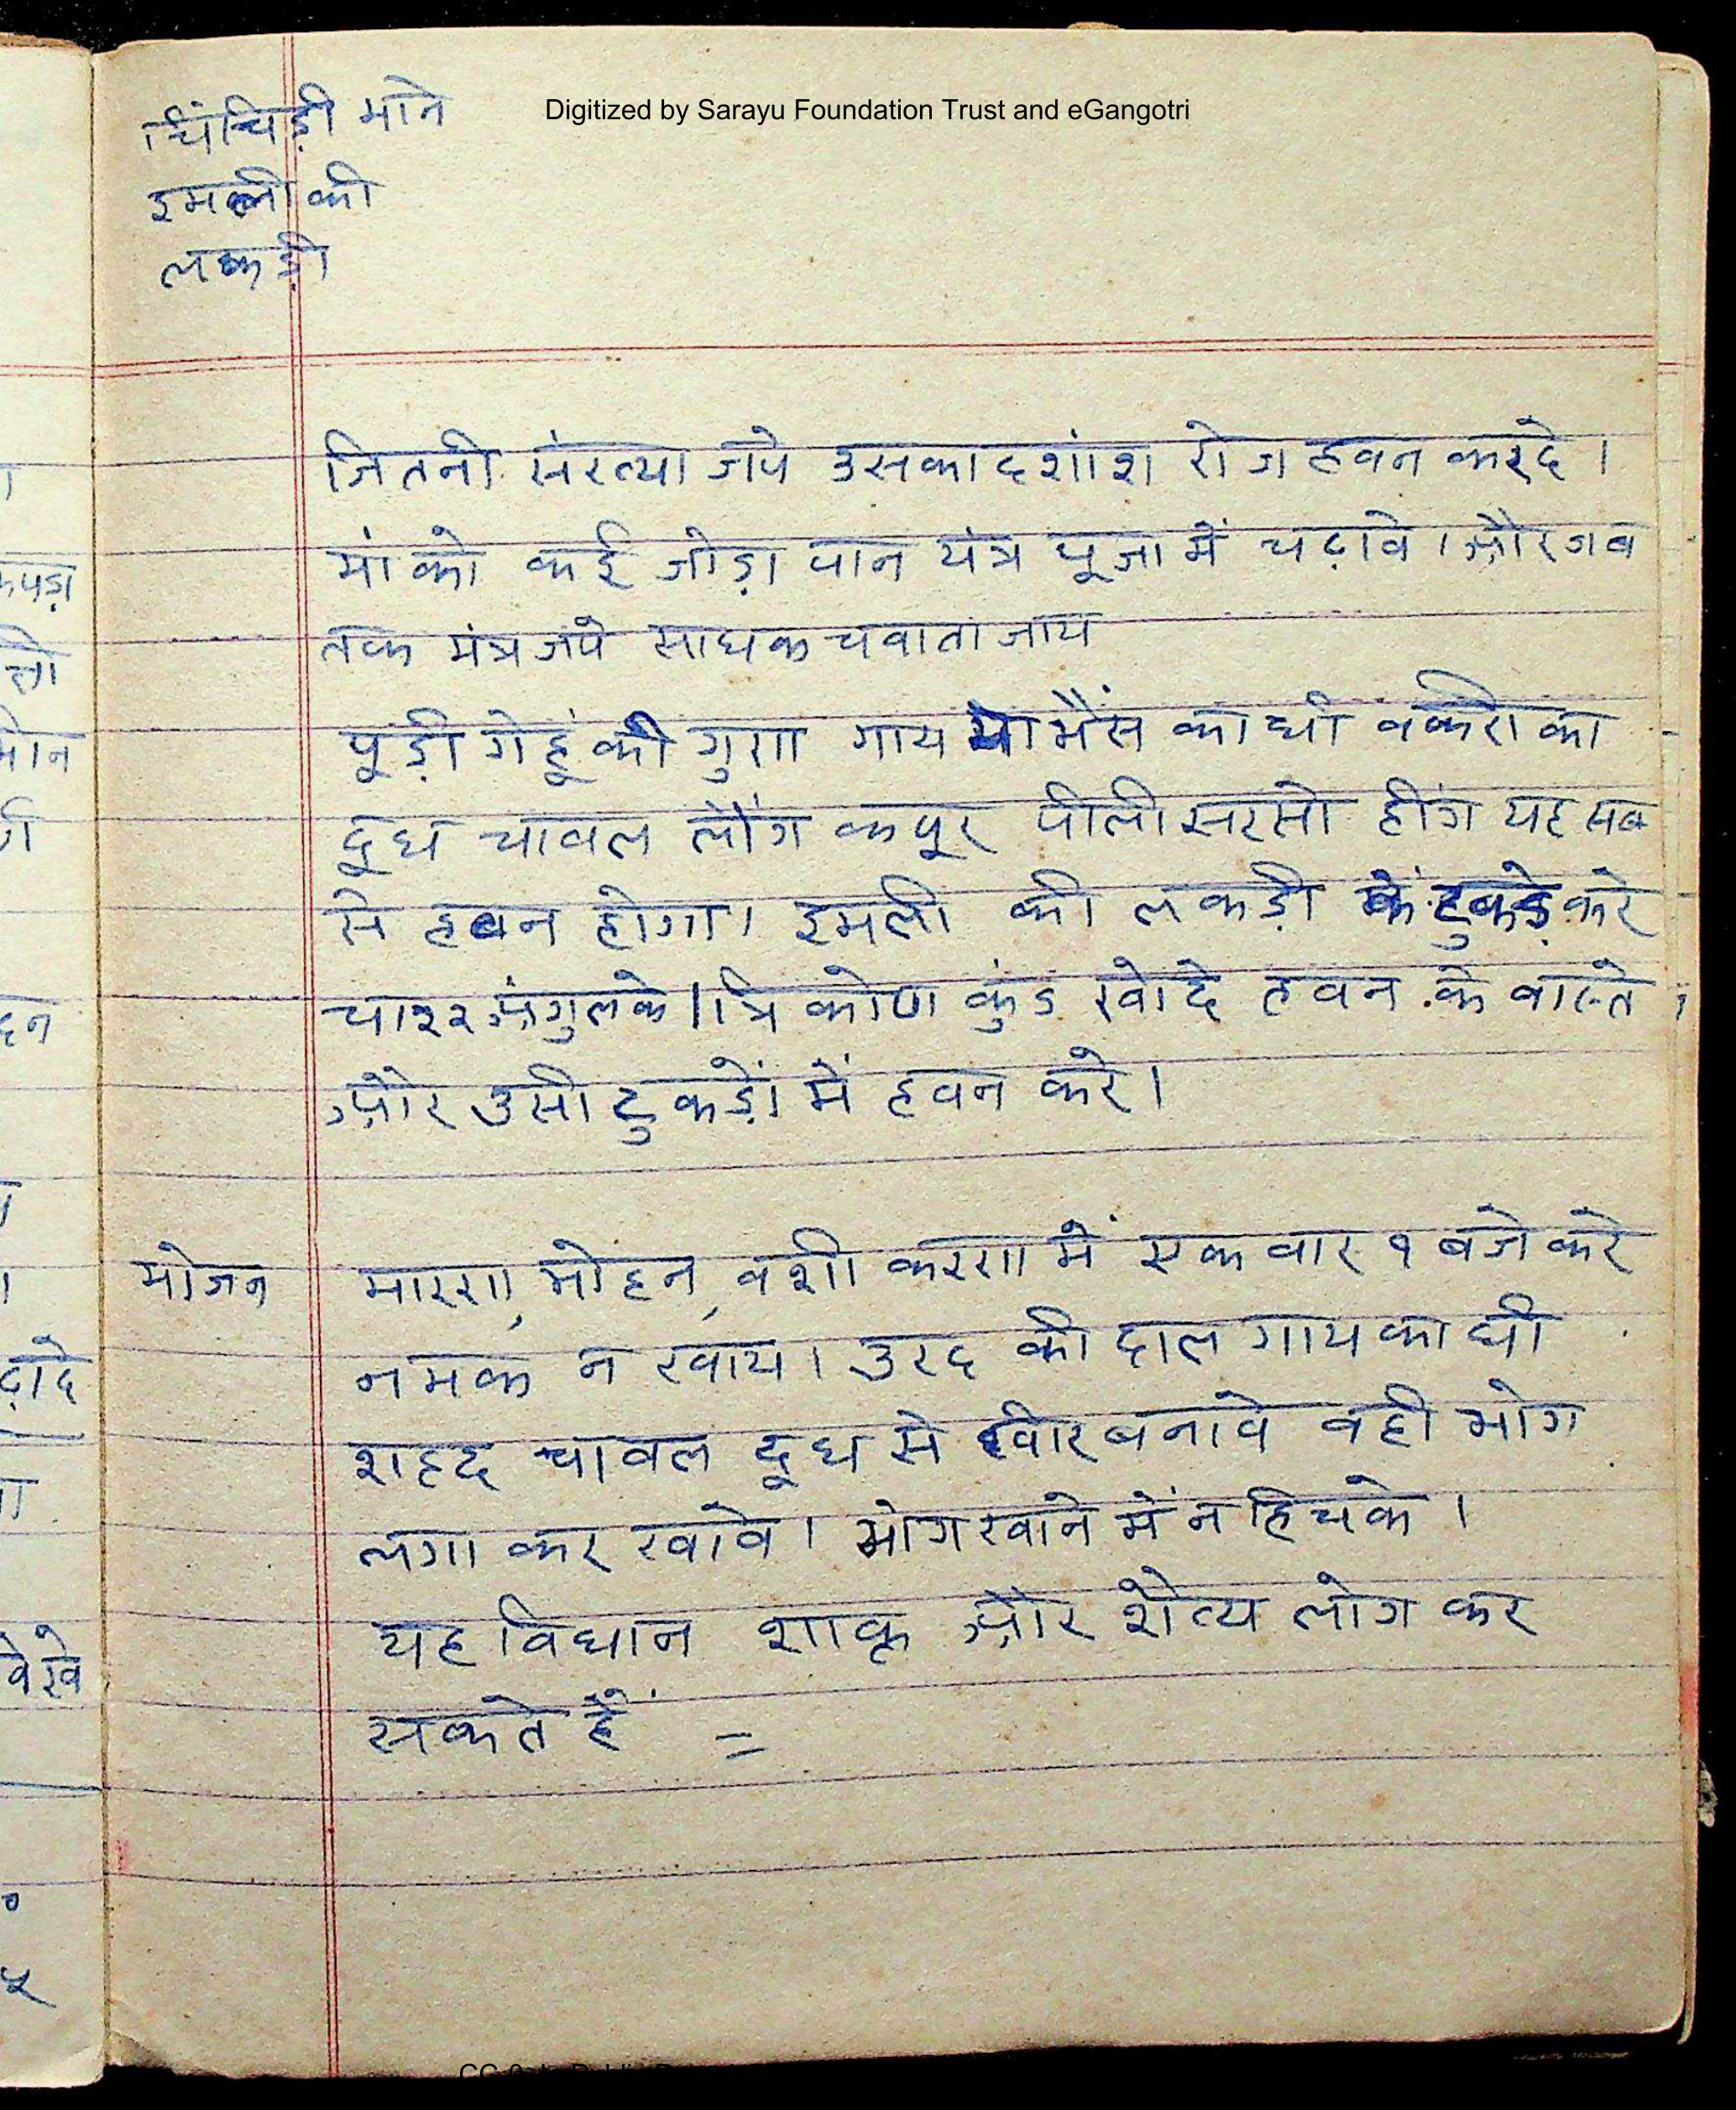 Digitized by Sarayu Foundation Trust and eGangotri
चिंचिड़ी माने
इमली की
लकड़ी
जितनी संख्या जपे उसका दशांश रोज हवन करदे।
मां को कई जोड़ा पान यंत्र पूजा में चढ़ावे। और जब
तक मंत्र जपे साधक चवाता जाय
पूड़ी गेहूं की गुण गाय या भैंस का घी वकरी का
दूध चावल लौंग कपूर पीली सरसो हींग यह सब
से हवन होगा। इमली की लकड़ी के टुकड़े करे
चार२ अंगुल के। त्रिकोण कुंड खोदे हवन के वास्ते।
और उसी टुकड़ों में हवन करे।
भोजन
मारण, मोहन, वशीकरण में एक वार १ बजे करे
नमक न खाय। उरद की दाल गाय का घी
शहद चावल दूध से खीर बनावे वही भोग
लगा कर खावे। भोग खाने में न हिचके।
यह विधान शाक्त और शैव्य लोग कर
सकते हैं =